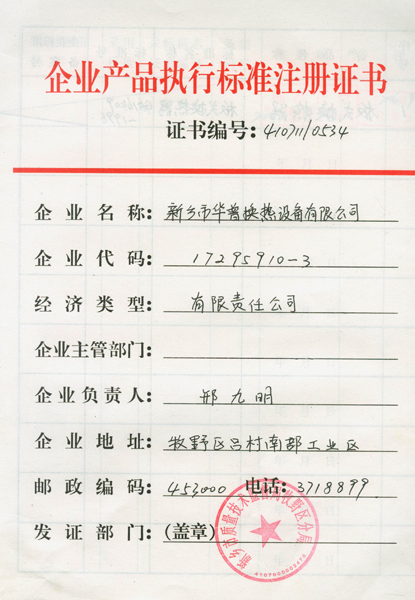 企业产品执行标准注册证书
证书编号:410711/0534
企业名称:新乡市华普换热设备有限公司
企业代码:17295910-3
经济类型:有限责任公司
企业主管部门:
企业负责人:邢九明
企业地址:牧野区吕村南部工业区
邮政编码:453000 电话:3718899
发证部门:(盖章)
新乡市质量技术监督局牧野区分局